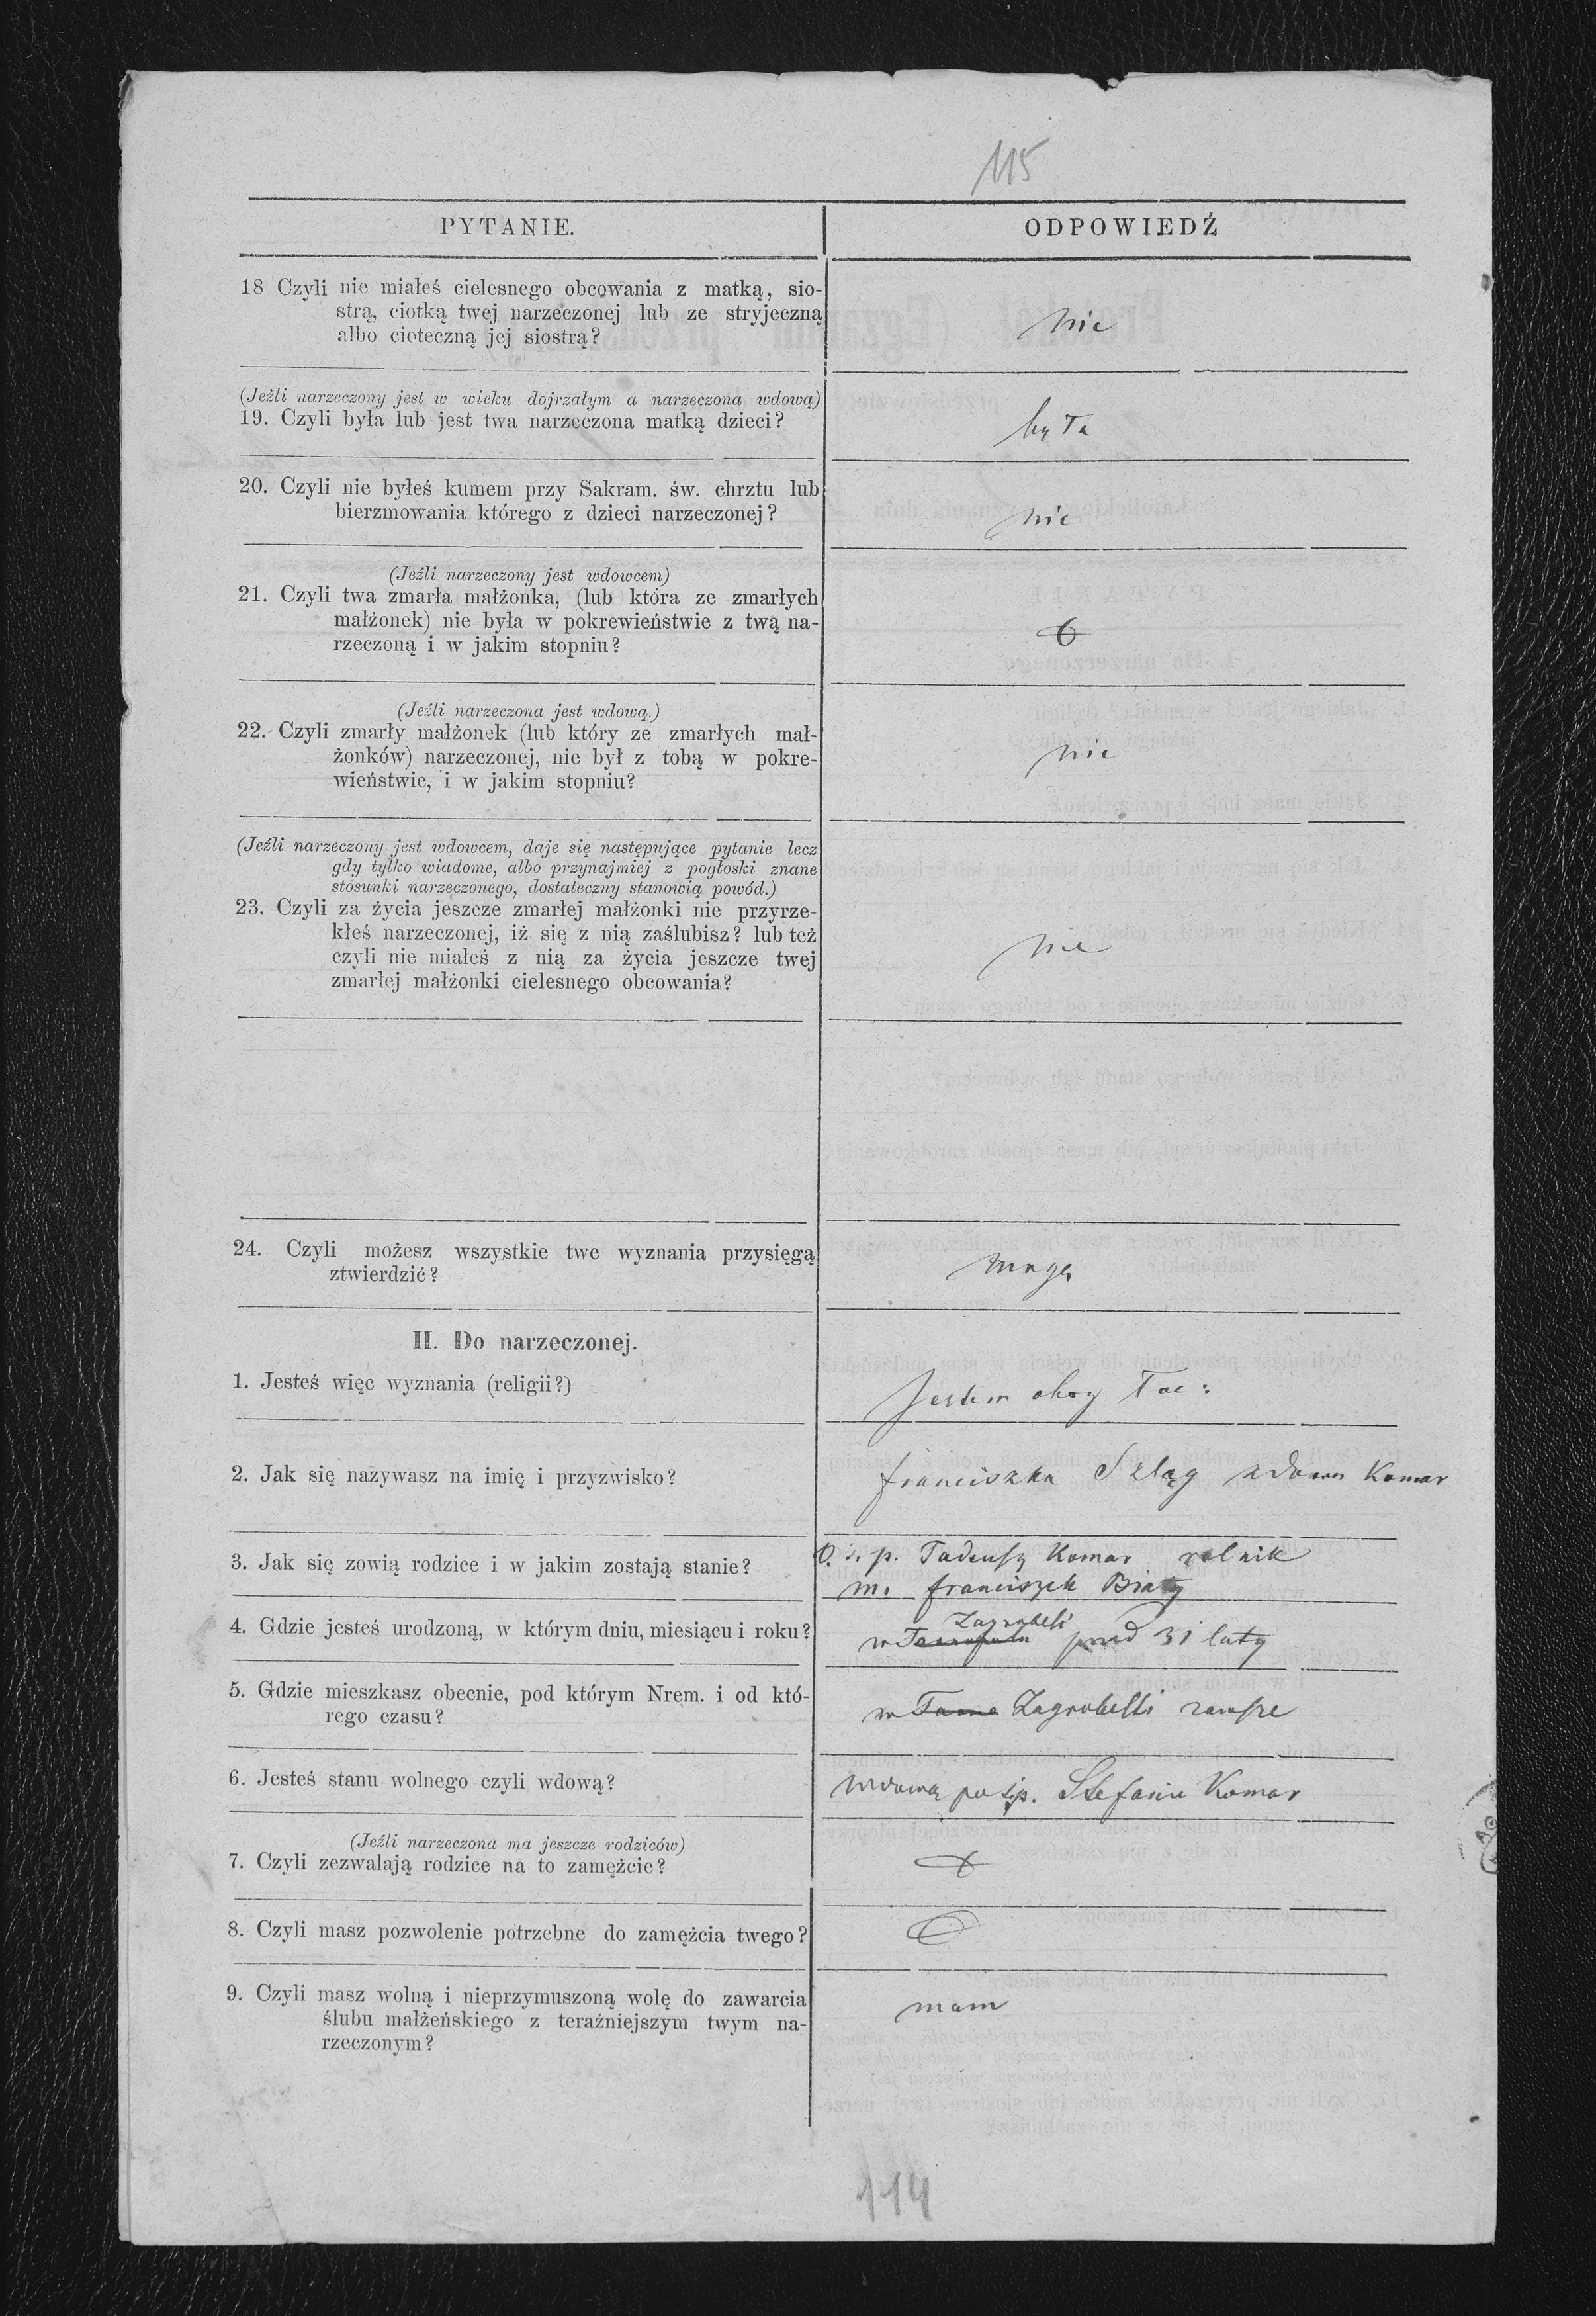 115
PYTANIE.
ODPOWIEDŹ
18 Czyli nie miałeś cielesnego obcowania z matką, sio-
strą, ciotką twej narzeczonej lub ze stryjeczną
albo cioteczną jej siostrą?
nie
(Jeźli narzeczony jest w wieku dojrzałym a narzeczona wdową)
19. Czyli była lub jest twa narzeczona matką dzieci?
była
20. Czyli nie byłeś kumem przy Sakram. św. chrztu lub
bierzmowania którego z dzieci narzeczonej?
nie
(Jeźli narzeczony jest wdowcem)
21. Czyli twa zmarła małżonka, (lub która ze zmarłych
małżonek) nie była w pokrewieństwie z twą na-
rzeczoną i w jakim stopniu?
(Jeźli narzeczona jest wdową.)
22. Czyli zmarły małżonek (lub który ze zmarłych mał-
żonków) narzeczonej, nie był z tobą w pokre-
wieństwie, i w jakim stopniu?
nie
(Jeźli narzeczony jest wdowcem, daje się następujące pytanie lecz
gdy tylko wiadome, albo przynajmiej z pogłoski znane
stosunki narzeczonego, dostateczny stanowią powód.)
23. Czyli za życia jeszcze zmarłej małżonki nie przyrze-
kłeś narzeczonej, iż się z nią zaślubisz? lub też
czyli nie miałeś z nią za życia jeszcze twej
zmarłej małżonki cielesnego obcowania?
nie
24. Czyli możesz wszystkie twe wyznania przysięgą
ztwierdzić?
mogę
II. Do narzeczonej.
1. Jesteś więc wyznania (religii?)
Jestem obrz łac:
2. Jak się nazywasz na imię i przyzwisko?
Franciszka Szląg zdomu Komar
3. Jak się zowią rodzice i w jakim zostają stanie?
O. ś. p. Tadeusz Komar rolnik
m. franciszek Biały
4. Gdzie jesteś urodzoną, w którym dniu, miesiącu i roku?
Zagrobeli
w Tarnopolu przed 31 laty
5. Gdzie mieszkasz obecnie, pod którym Nrem. i od któ-
rego czasu?
w Zagrobelli zawsze
6. Jesteś stanu wolnego czyli wdową?
wdową po śp. Stefanie Komar
(Jeźli narzeczona ma jeszcze rodziców)
7. Czyli zezwalają rodzice na to zamężcie?
8. Czyli masz pozwolenie potrzebne do zamężcia twego?
9. Czyli masz wolną i nieprzymuszoną wolę do zawarcia
ślubu małżeńskiego z teraźniejszym twym na-
rzeczonym?
mam
114